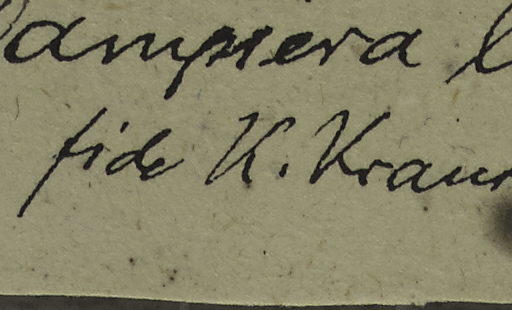 Dampiera
fide K. Kraus